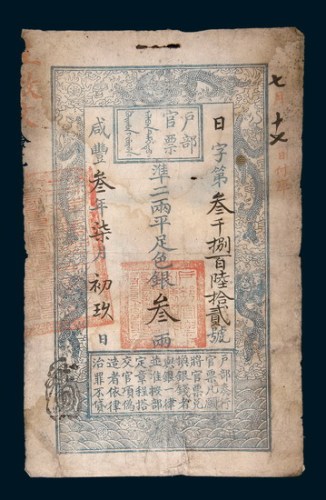 戶部
官票
日字第叁千捌百陸拾貳號
準二兩平足色銀叁兩
咸豐叁年柒月初玖日
戶部奏行
官票凡願
將官票兌
換銀錢者
與銀一律
並准按部
定章程搭
交官項偽
造者依律
治罪不貸